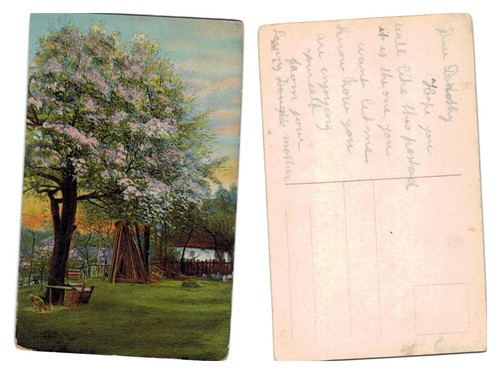 Dear Dorothy
Hope you
will like this postcard
it is the one you
want let me
know how you
are enjoying
yourself
from your
Loving mother